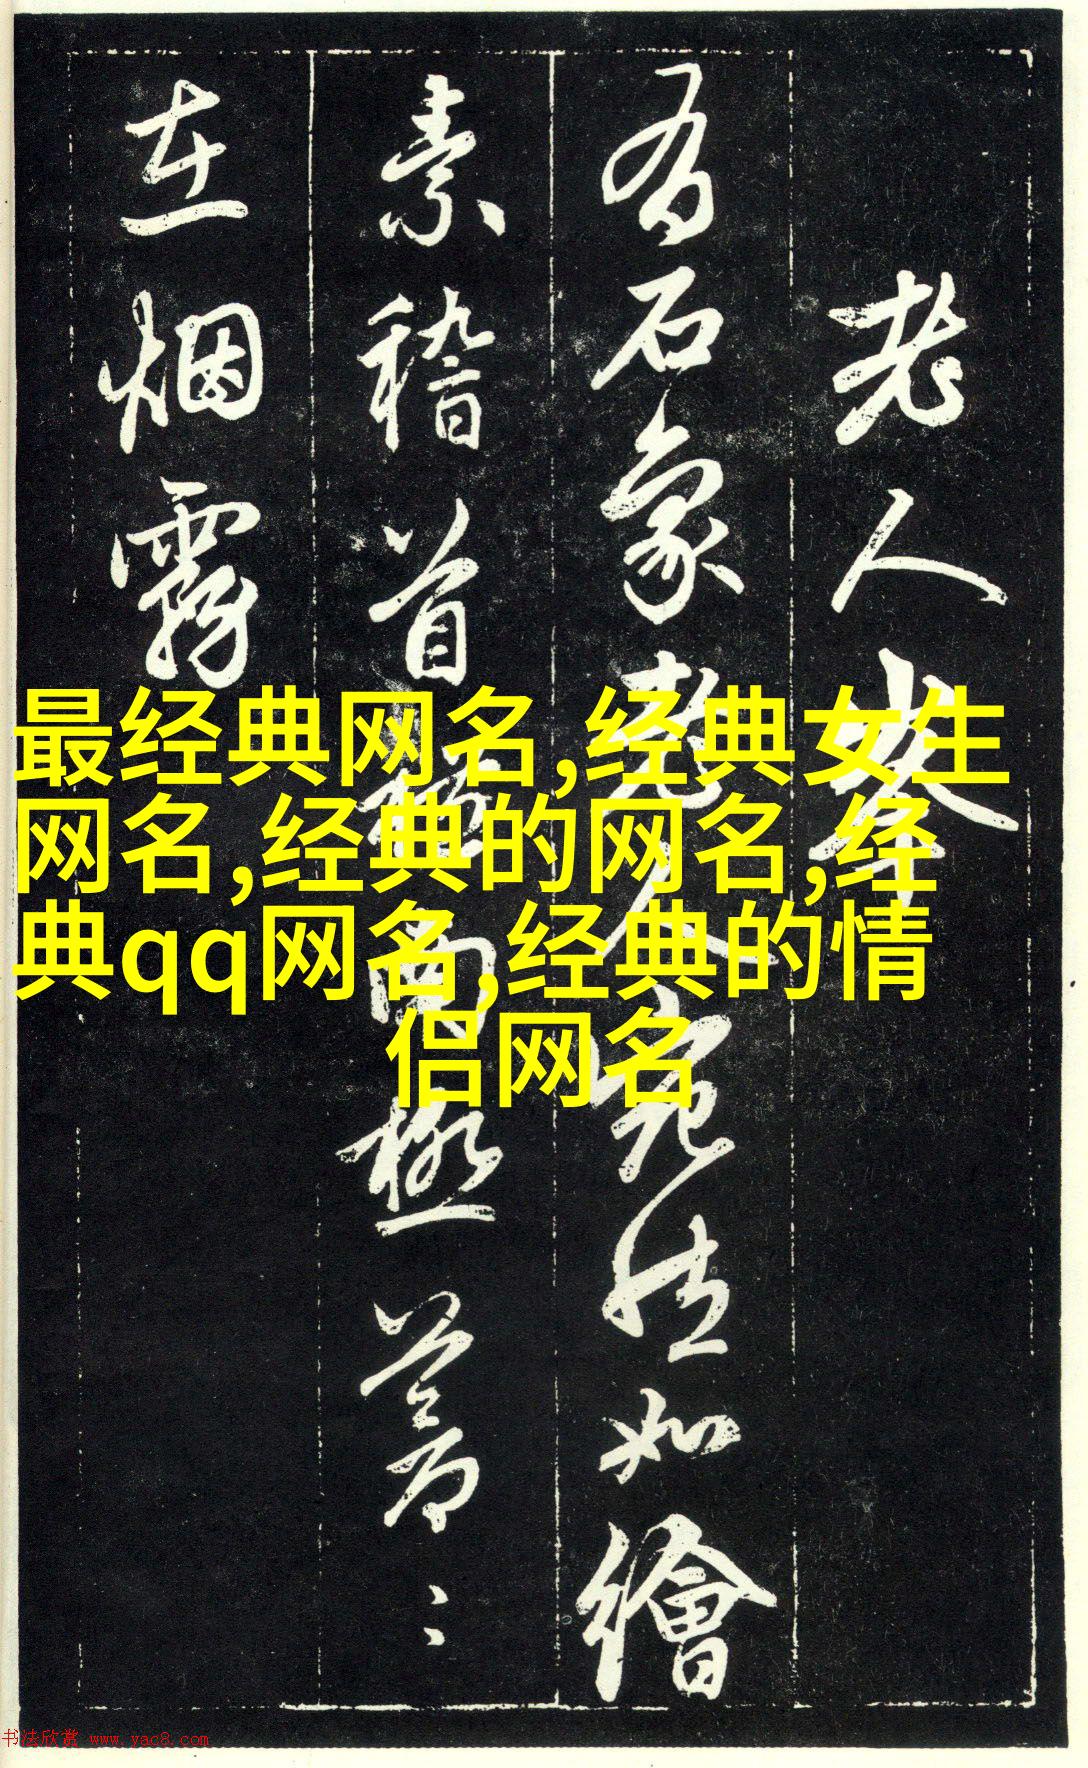 老人峯
有石象老人宛然如繪
素稽首拱南極蒼蒼
在烟霧
最经典网名,经典女生
网名,经典的网名,经
典qq网名,经典的情
侣网名
书法欣赏 www.yac8.com